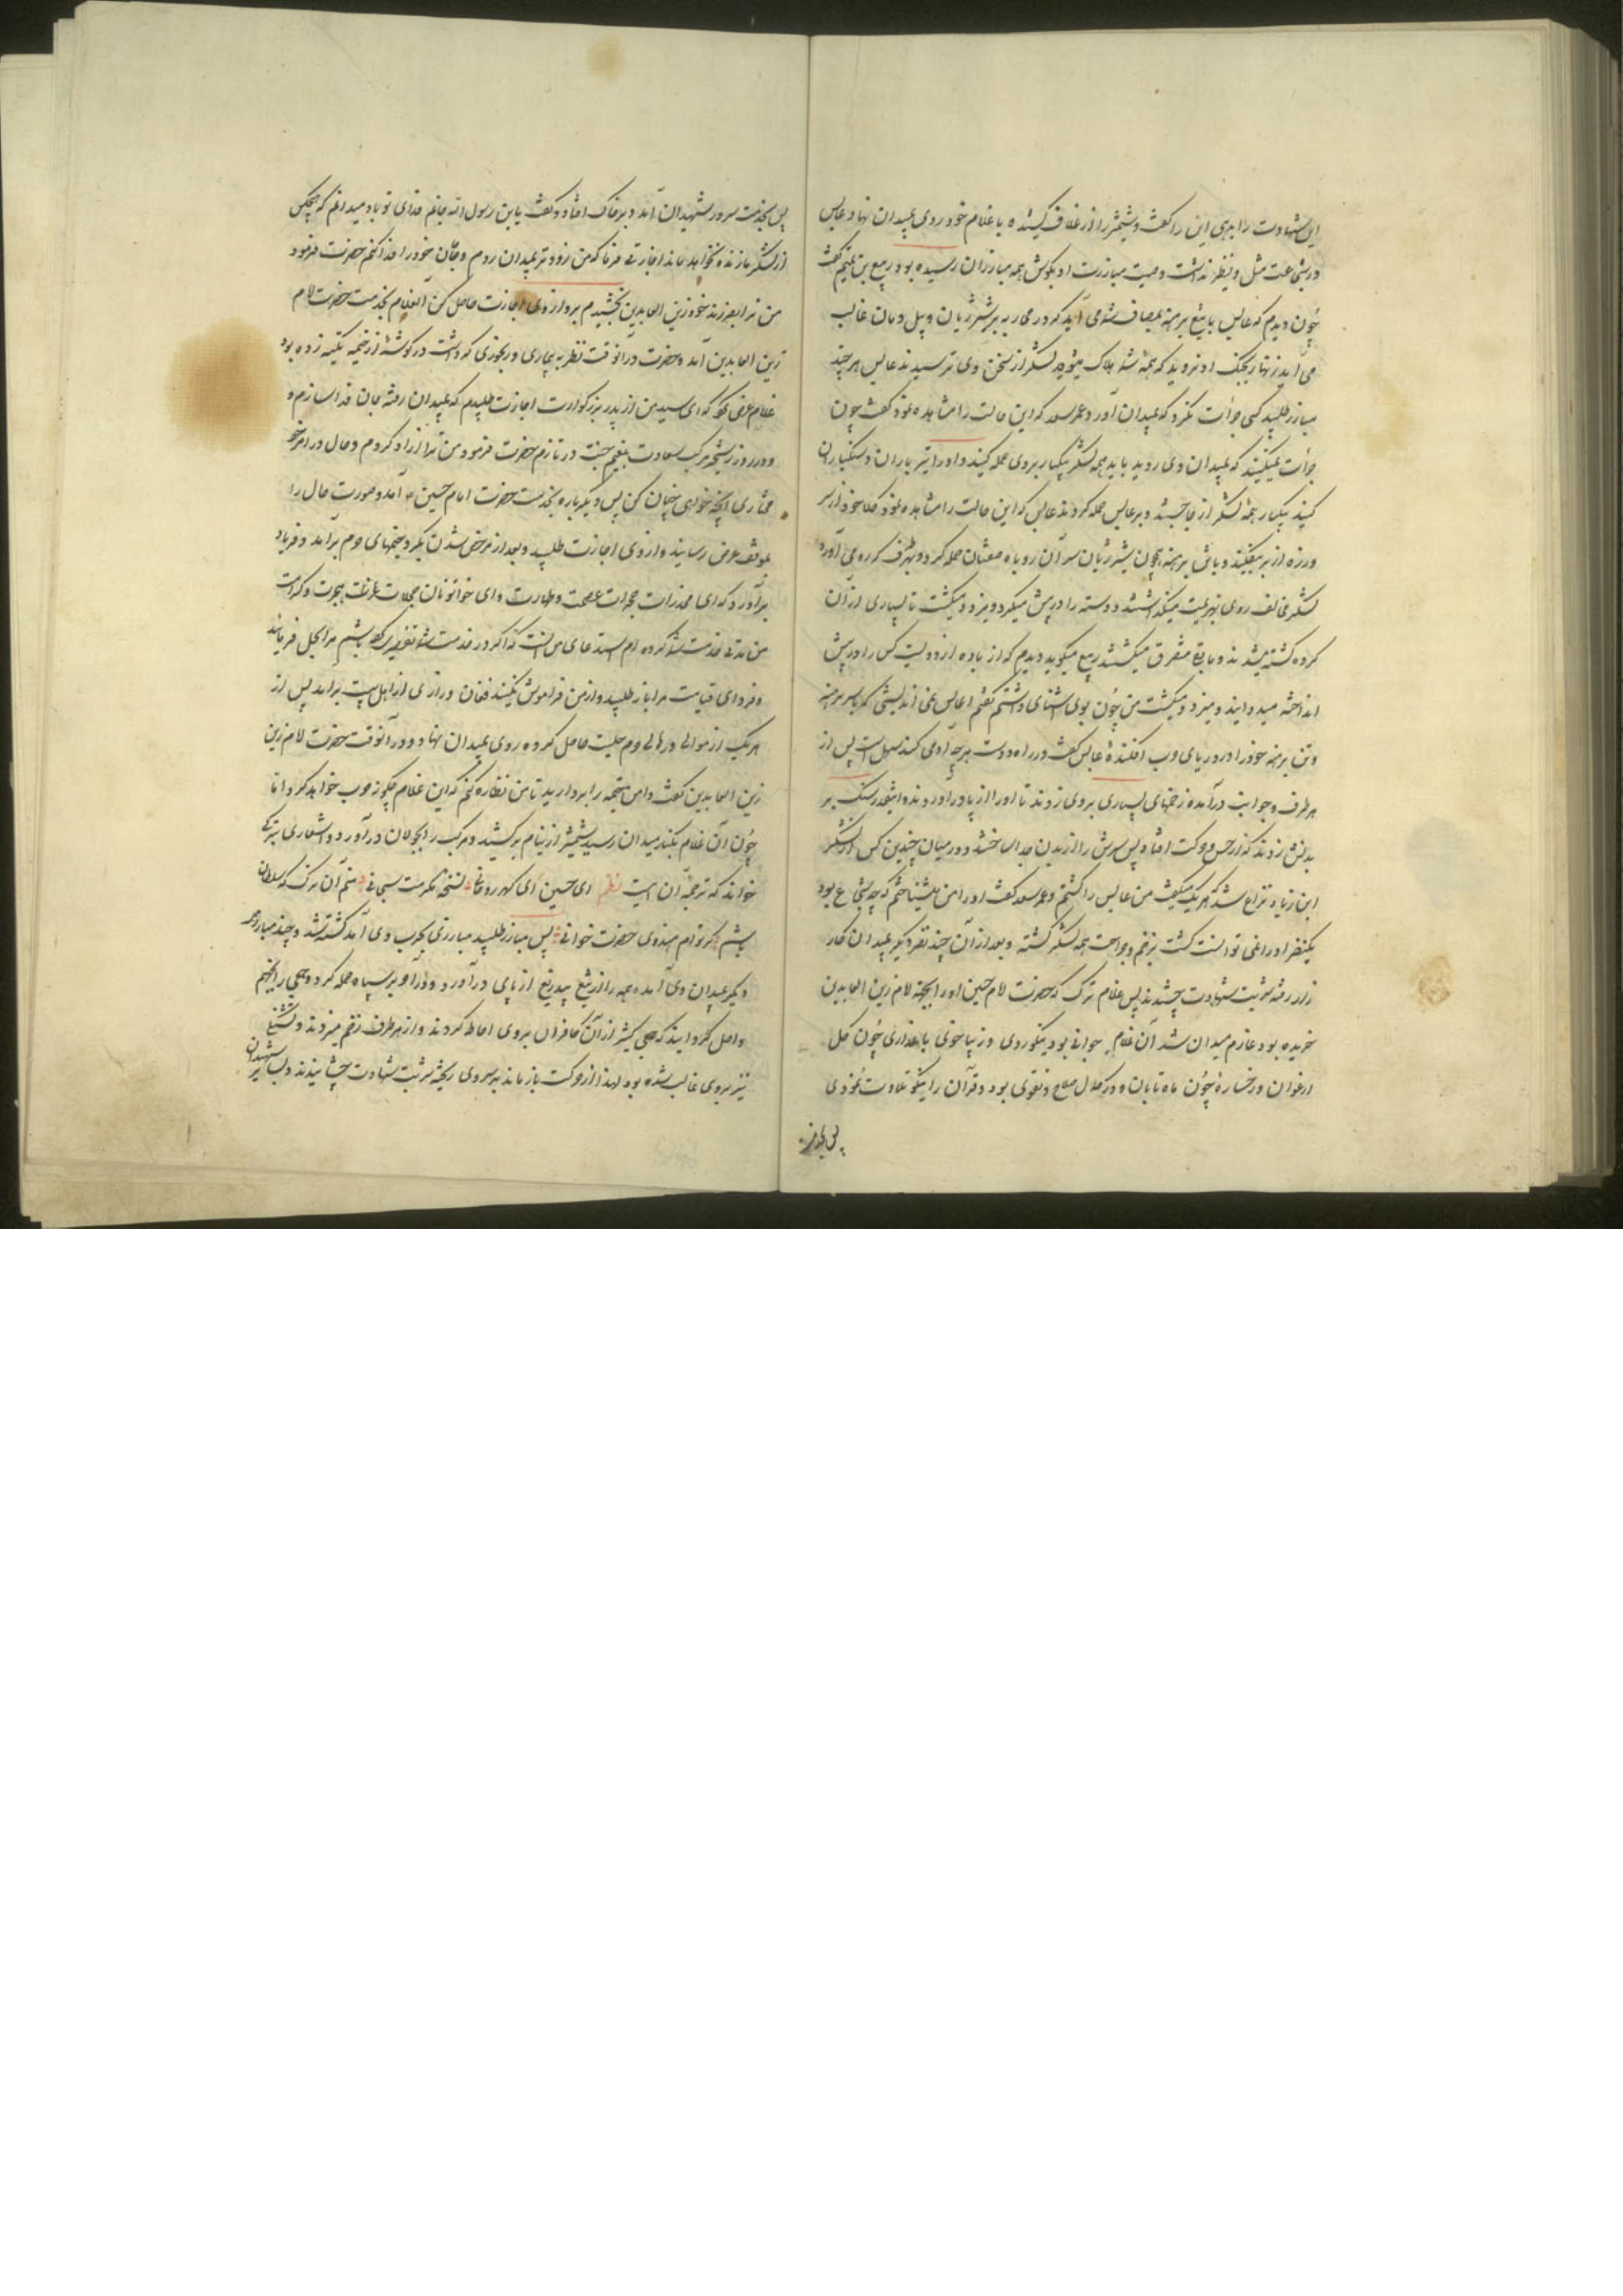 این شهادت را ابدی این را گفت و شمشیر را از غلاف کشیده با غلام خود روی بمیدان نهاد عابس
در شجاعت مثل و نظیر نداشت وصیت مبارزت او بگوش همه مبارزان رسیده بود ربیع بن تمیم گفت
چون دیدم که عابس با تیغ برهنه بمصاف شما می آید که در محاربه بر شیر ژیان و پیل دمان غالب
می آید زنهار بجنگ او نروید که همه شما هلاک میشوید لشکر از سخن وی ترسیدند عابس هر چند
مبارز طلبید کسی جرأت نکرد که بمیدان آورد عمر سعد که این حالت را مشاهده نمود گفت چون
جرأت نمیکنید که بمیدان وی روید باید همه لشکر بیکبار بروی حمله کنید و او را تیر باران و سنگباران
کنید بیکبار همه لشکر از جا جستند و بر عابس حمله کردند عابس که این حالت را مشاهده نمود کلاه خود از سر
و زره از بر بیفکند و با تن برهنه همچون شیر ژیان بر آن روباه صفتان حمله کرد و بهر طرف که رو می آورد
لشکر مخالف روی بهزیمت میگذاشتند دو دسته را در پیش میکرد و میزد و میکشت تا بسیاری از آن
گروه کشته شدند و مابقی متفرق میگشتند ربیع میگوید دیدم که زیاده از دویست کس را در پیش
انداخته میدوانید و میزد و میکشت من چون بوی آشنایی داشتم گفتم ای عابس نمی اندیشی که با سر برهنه
و تن برهنه خود را در دریای حرب افکندهٔ عابس گفت در راه دوست هر چه آدمی کند سهل است پس از
هر طرف و جوانب درآمده زخمهای بسیاری بر وی زدند تا او را از پا درآوردند و آنقدر سنگ بر
بدنش زدند که از حس و حرکت افتاد پس سرش را از بدن جدا ساختند و در میان چندین کس از لشکر
ابن زیاد نزاع شد که هر یک میگفت من عابس را کشتم و عمر سعد گفت او را من میشناختم که چه شجاع بود
یکنفر او را نمی توانست کشت بزخم و جراحت همه لشکر کشته و بعد از آن چند نفر دیگر بمیدان کار
زار رفته شربت شهادت چشیدند پس غلام ترک که حضرت امام حسین او را بجهت امام زین العابدین
خریده بود عازم میدان شد آن غلام جوانی بود نیکو روی و زیبا خوی با عذاری چون گل
ارغوان و رخساره چون ماه تابان و در کمال صلاح و تقوی بود و قرآن را نیکو تلاوت نمودی
پس بخدمت
پس بخدمت سرور شهیدان آمد و بر خاک افتاد و گفت یابن رسول الله جانم فدای تو باد میدانم که هیچکس
از لشکر ما زنده نخواهد ماند اجازتی فرما که من زودتر بمیدان روم و جان خود را فدا کنم حضرت فرمود
من ترا بفرزند خود زین العابدین بخشیدم برو از وی اجازت حاصل کن آن غلام بخدمت حضرت امام
زین العابدین آمد و حضرت در آنوقت نظر به بیماری و رنجوری که داشت در گوشهٔ از خیمه تکیه زده بود
غلام عرض نمود که ای سید من از پدر بزرگوارت اجازت طلبیدم که بمیدان رفته جان فدا سازم و
و در روز رستخیز مرکب سعادت بنعیم جنت درتازم حضرت فرمود من ترا آزاد کردم و حال در امر خود
مختاری آنچه خواهی چنان کن پس دیگر باره بخدمت حضرت امام حسین ع آمد و صورت حال را
بموقف عرض رسانید و از وی اجازت طلبید و بعد از مرخص شدن بگرد خیمهای حرم برآمد و فریاد
برآورد که ای مخدرات حجرات عصمت و طهارت و ای خواتونان
من مدتی خدمت شما کرده ام استدعای من آنست که اگر در خدمت شما تقصیری کرده باشم مرا بحل فرمائید
و فردای قیامت مرا باز طلبید و از من فراموش نکنید فغان و زاری از اهل بیت برآمد پس از
هر یک از موالی و اهالی حرم حلیت حاصل کرده روی بمیدان نهاد و در آنوقت حضرت امام زین
زین العابدین گفت دامن خیمه را بردارید تا من نظاره کنم که این غلام چگونه حرب خواهد کرد اما
چون آن غلام بکنار میدان رسید شمشیر از نیام برکشید و مرکب را بجولان درآورد و اشعاری بترکی
خواند که ترجمهٔ آن اینست نظم ای حسین ای گهر روحانی نسخهٔ مکرمت سبحانی منم آن ترک که سلطان
باشم گر توام هندوی حضرت خوانی پس مبارز طلبید مبارزی بحرب وی آمد کشته شد و چند مبارز هم
دیگر بمیدان وی آمده همه را از تیغ بیدریغ از پای درآورد و بر سپاه حمله کرد و جمعی را بجهنم
واصل گردانید که جمعی کثیر از آن کافران بروی احاطه کردند و از هر طرف زخم میزدند و تشنگی
نیز بروی غالب شده بود لهذا از حرکت باز ماند شربت شهادت چشانیدند